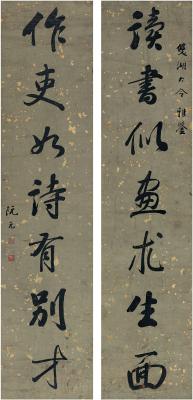 雙湖大令雅鑒
讀書似畫求生面
作吏如詩有別才
阮元